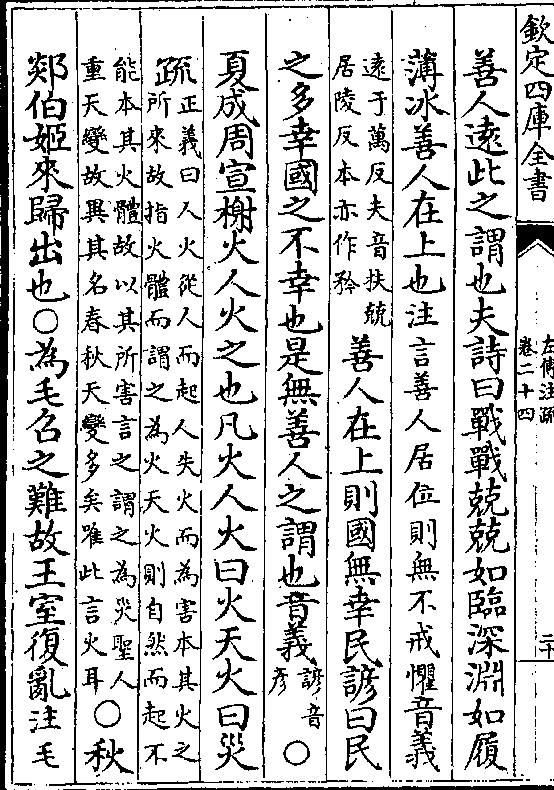 欽定四庫全書
左傳注疏
卷二十四
二十
善人遠此之謂也夫詩曰戰戰兢兢如臨深淵如履
薄冰善人在上也注言善人居位則無不戒懼音義
遠于萬反夫音扶兢
居陵反本亦作矜
善人在上則國無幸民諺曰民
之多幸國之不幸也是無善人之謂也音義
諺音
彥
○
夏成周宣榭火人火之也凡火人火曰火天火曰災
疏
正義曰人火從人而起人失火而為害本其火之
所來故指火體而謂之為火天火則自然而起不
能本其火體故以其所害言之謂之為災聖人
重天變故異其名春秋天變多矣唯此言火耳
○秋
郯伯姬來歸出也○為毛召之難故王室復亂注毛